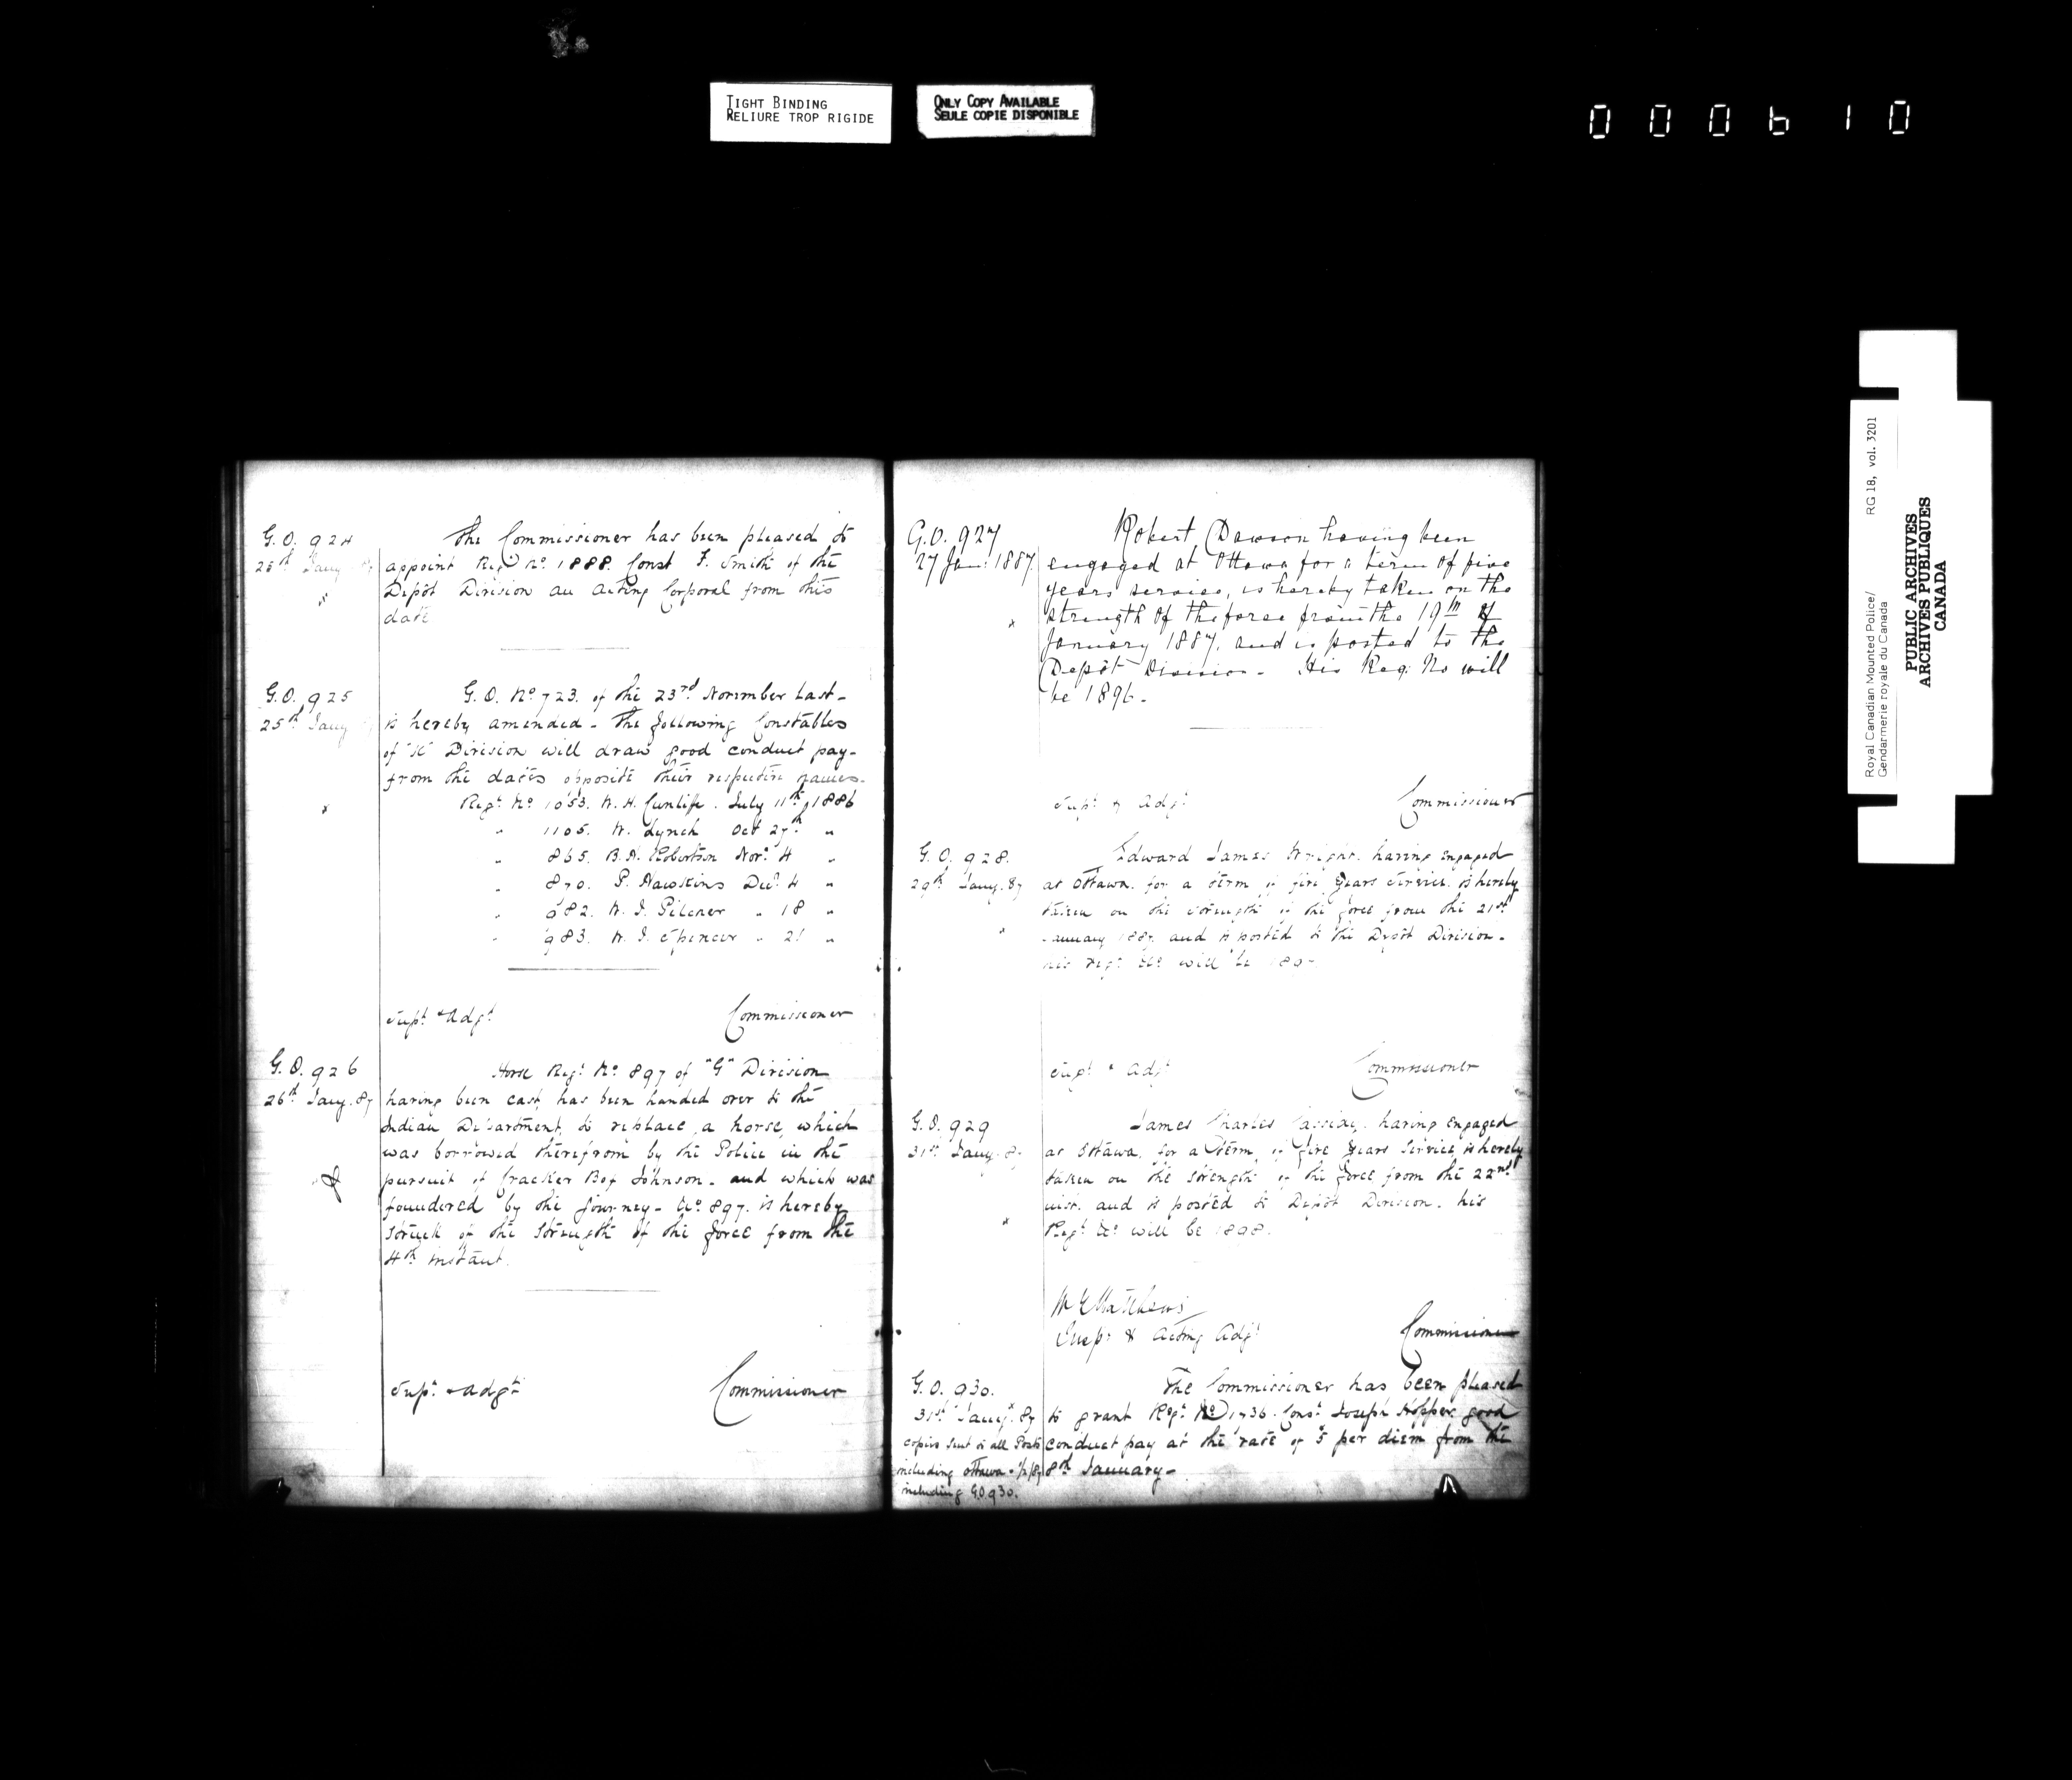 TIGHT BINDING
RELIURE TROP RIGIDE
ONLY COPY AVAILABLE
SEULE COPIE DISPONIBLE
000610
G.O. 924
25th Jany
The Commissioner has been pleased to
appoint Regt No 1888. Const F. Smith of the
Depôt Division an Acting Corporal from this
date
G.O. 925
25th Jany
G.O. No 723. of the 23rd November last-
is hereby amended - The following Constables
of "K" Division will draw good conduct pay-
from the dates opposite their respective names-
Regt No 1053. W. H. Cunliffe. July 11th 1886
" 1105. W. Lynch Oct 27th "
" 865. B.A. Robertson Novr 4 "
" 870. P. Hawkins Decr 4 "
" 882. W. J. Pilcher " 18 "
" 983. W. J. Spencer " 21 "
Supt & Adjt
Commissioner
G.O. 926
26th Jany. 87
Horse Regt No 897 of "G" Division
having been cast, has been handed over to the
Indian Department, to replace a horse, which
was borrowed therefrom by the Police in the
pursuit of Cracker Box Johnson - and which was
foundered by the journey - No 897. is hereby
struck of the strength of the force from the
4th instant.
Supt & Adgt
Commissioner
G.O. 927
27 Jan. 1887
Robert Dawson having been
engaged at Ottawa for a term of five
years' service, is hereby taken on the
strength of the force from the 19th of
January 1887, and is posted to the
Depôt Division - His Reg. No will
be 1896 -
Supt & Adjt
Commissioner
G.O. 928.
29th Jany. 87
Edward James Wright. having engaged
at Ottawa. for a term of five years service. is hereby
taken on the strength of the force from the 21st
January 1887. and is posted to the Depôt Division -
his Regt No will be 189
Supt & Adjt
Commissioner
G.O. 929
31st Jany. 87
James Charles Cassidy. having engaged
at Ottawa. for a term of five years service, is hereby
taken on the strength of the force from the 22nd
inst. and is posted to Depôt Division. his
Regt No will be 1898.
Matthews
Insp. & Acting Adjt
Commissioner
G.O. 930.
31st Jany. 87
copies sent to all Posts
including Ottawa - 1/2/87
including G.O. 930.
The Commissioner has been pleased
to grant Regt No 1736. Const Joseph Hopper. good
conduct pay at the rate of 5 per diem from the
8th January -
Royal Canadian Mounted Police/
Gendarmerie royale du Canada
RG 18, vol. 3201
PUBLIC ARCHIVES
ARCHIVES PUBLIQUES
CANADA